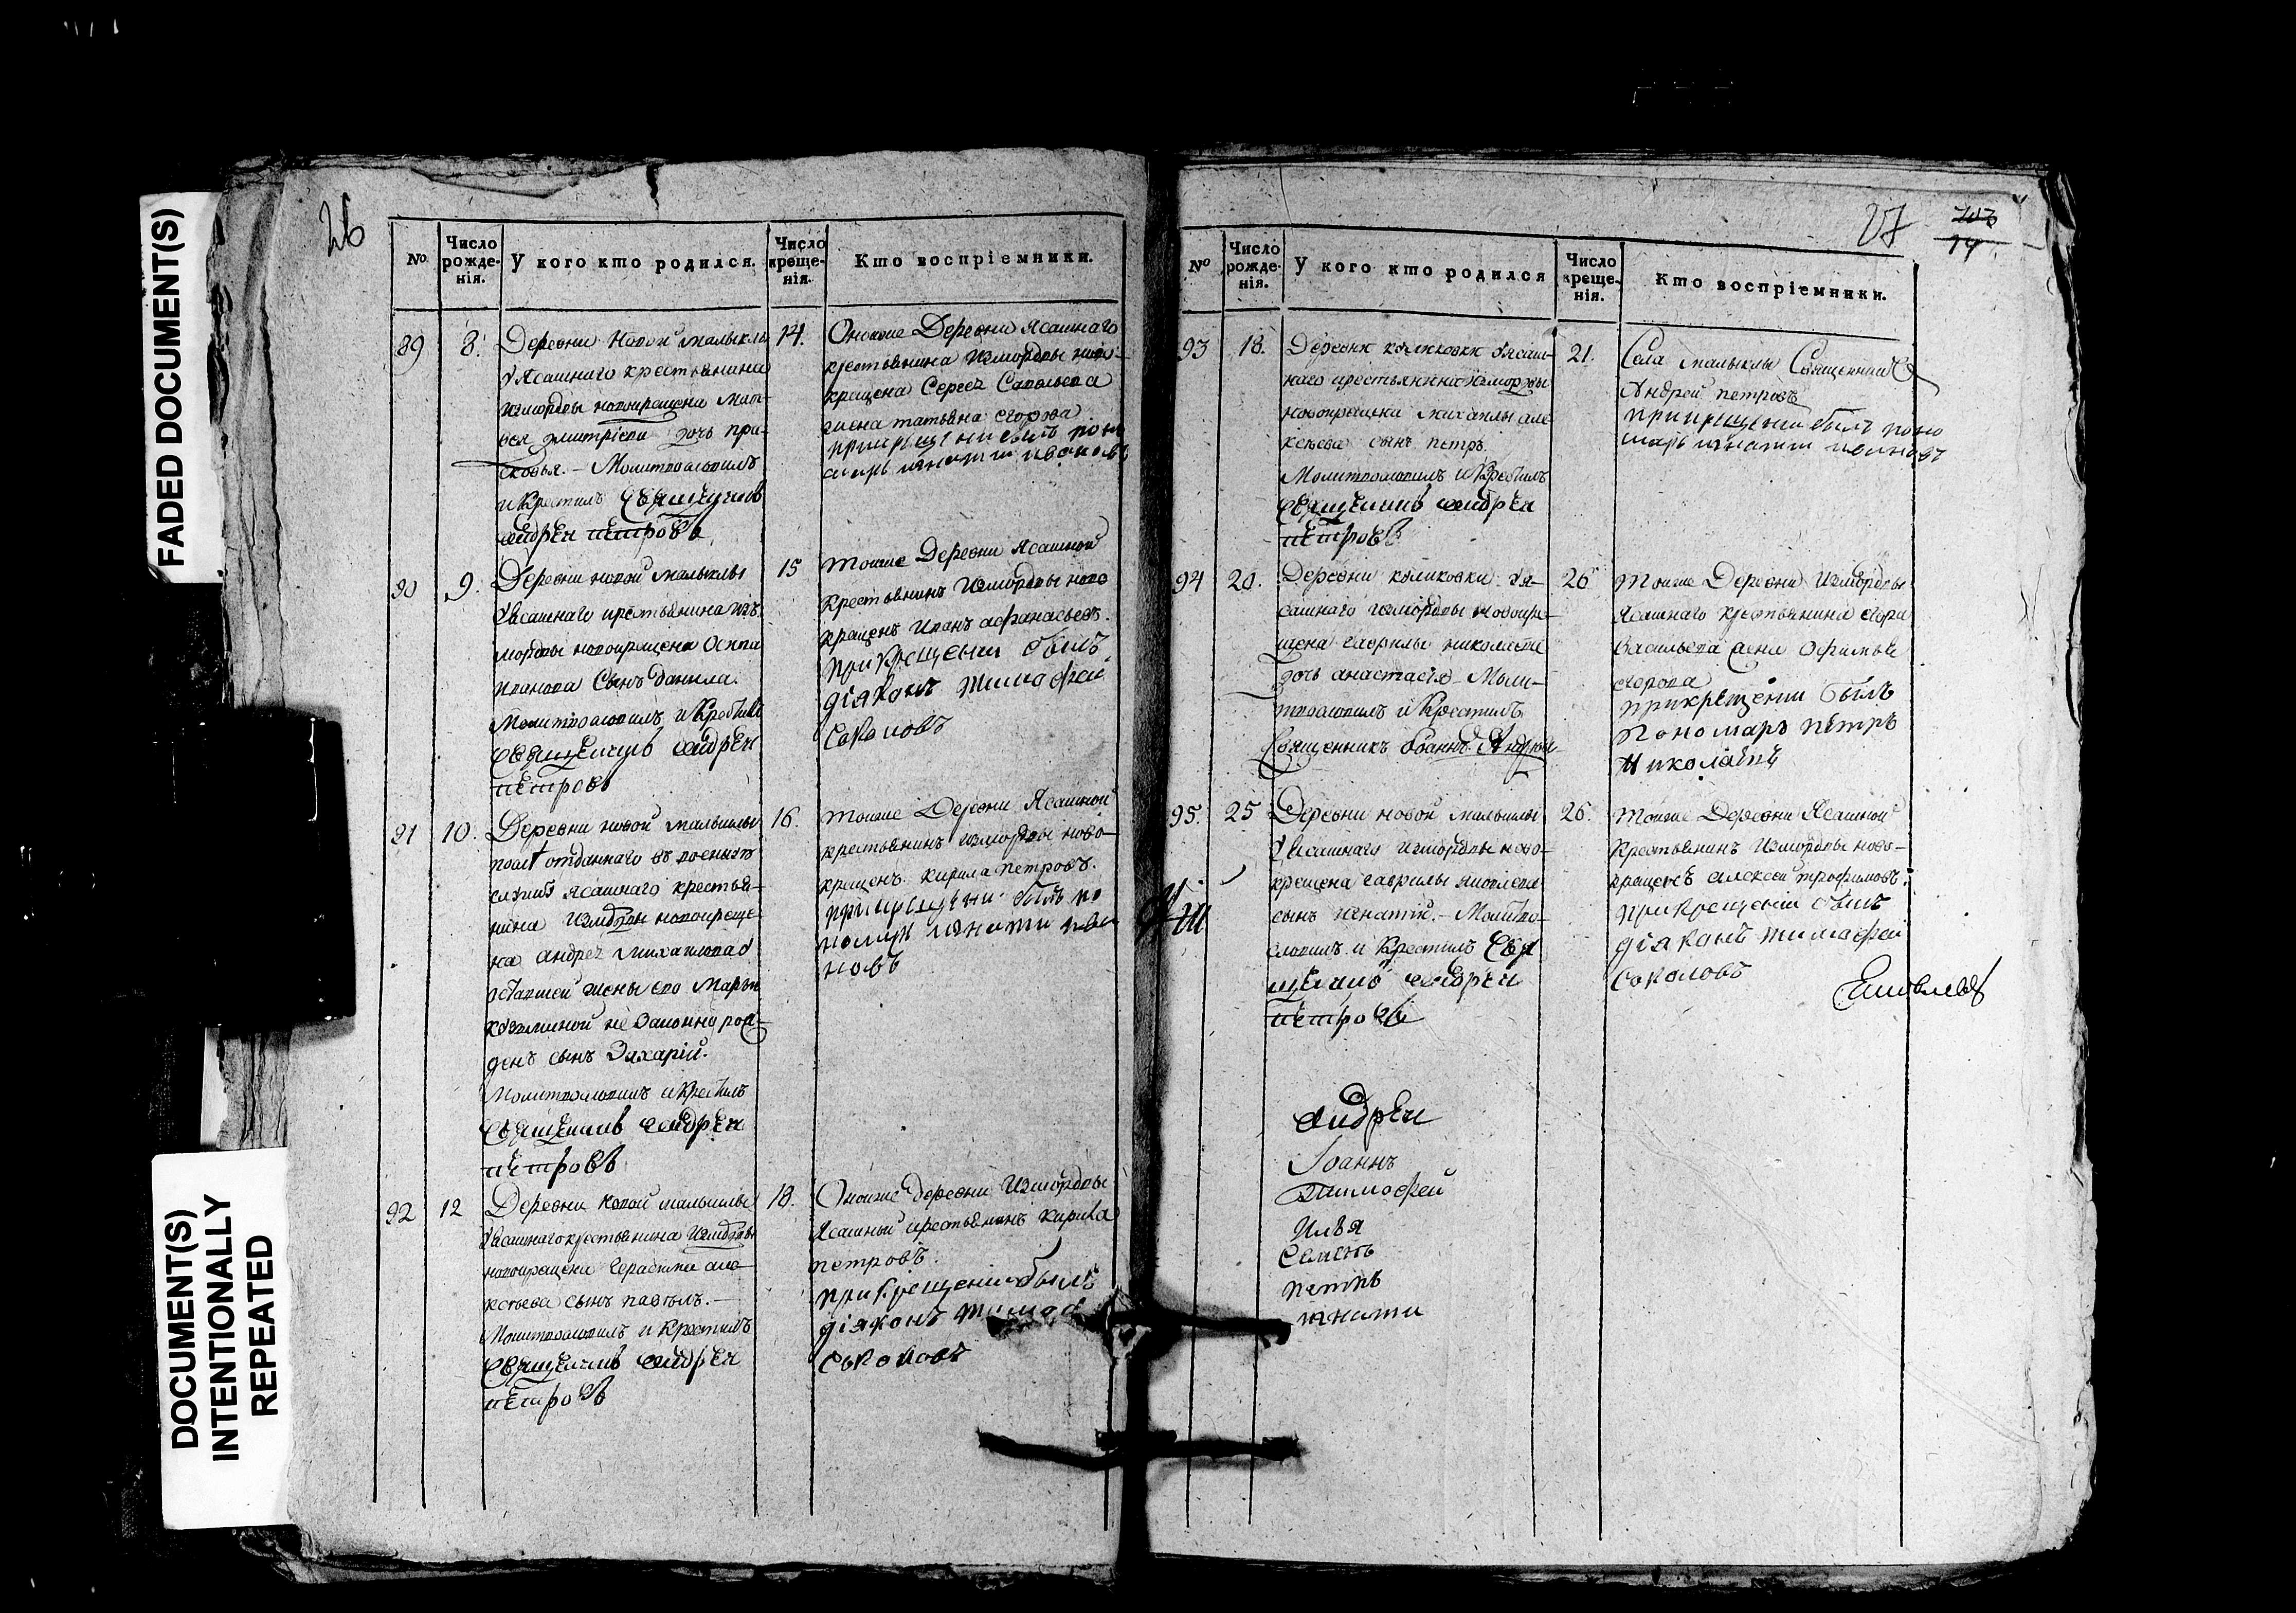 FADED DOCUMENT(S)
DOCUMENT(S)
INTENTIONALLY
REPEATED
26
No.
Число рожде-нія.
У кого кто родился.
Число креще-нія.
Кто воспріемники.
89 8. Деревни Новой Малыклы
у Ясашнаго крестьянина
измордвы новокрещена Мат-
вея Дмитріева дочь пра-
сковья. – Молитвословилъ
и крестилъ священникъ
андрей петровъ
14. Оноюже Деревни Ясашнаго
крестьянина измордвы ново-
крещена Сергея Савельева
жена татьяна егорова
при крещении былъ поно
марь игнати ивановъ
90 9. Деревни новой малыклы
у Ясашнаго крестьянина изъ
мордвы новокрещена Осипа
Иванова Сынъ данила.
Молитвословилъ и крестилъ
священникъ андреи
петровъ
15 тоиже Деревни Ясашной
крестьянинъ измордвы ново
крещенъ Иванъ афанасьевъ.
при крещении былъ
діяконъ тимофей
Соколовъ
91 10. Деревни новой малыклы
отданнаго въ военную
службу Ясашнаго крестья-
нина измордвы новокреще-
на андрея михаилова у
оставшей жены его Марьи
козминой не законно рож-
денъ сынъ Захарій.
Молитвословилъ и крестилъ
священникъ андреи
петровъ
16. тоиже Деревни Ясашной
крестьянинъ измордвы ново-
крещенъ кирила петровъ.
при крещении былъ по
номарь игнати ива
новъ
92 12 Деревни новой малыклы
у Ясашнаго крестьянина измордвы
новокрещена Герасима але-
ксеева сынъ павелъ. –
Молитвословилъ и крестилъ
священникъ андреи
петровъ
18. Оноиже деревни Измордвы
Ясашный крестьянинъ кирила
петровъ.
при крещении былъ
діяконъ тимофе
Соколовъ
27
14
No
Число рожде-нія.
У кого кто родился
Число креще-нія.
Кто воспріемники.
93 18. Деревни куликовки у ясаш-
наго крестьянина измордвы
новокрещена михаилы але
ксеева сынъ петръ.
Молитвословилъ и крестилъ
священникъ андреи
петровъ
21. Села малыклы Священникъ
Андрей петровъ
при крещении былъ поно
марь игнати ивановъ
94 20. Деревни куликовки у я-
сашнаго измордвы новокре-
щена гаврилы николаева
дочь анастасія – Моли-
твословилъ и крестилъ
Священникъ Іоаннъ Андреевъ
26 тоиже Деревни Измордвы
Ясашнаго крестьянина егора
Васильева жена Офимья
егорова
при крещении былъ
Пономарь петръ
Николаевъ
95. 25 Деревни новой малыклы
у Ясашнаго измордвы ново-
крещена гаврилы яковлева
сынъ игнатій. – Молитво-
словилъ и крестилъ свя
щенникъ андреи
петровъ
26. тоиже Деревни Ясашной
крестьянинъ Измордвы ново-
крещенъ алексей трофимовъ.
при крещении былъ
діяконъ тимофеи
Соколовъ
Яковлевъ
андреи
Іоаннъ
тимофей
Илья
Семенъ
петръ
игнати